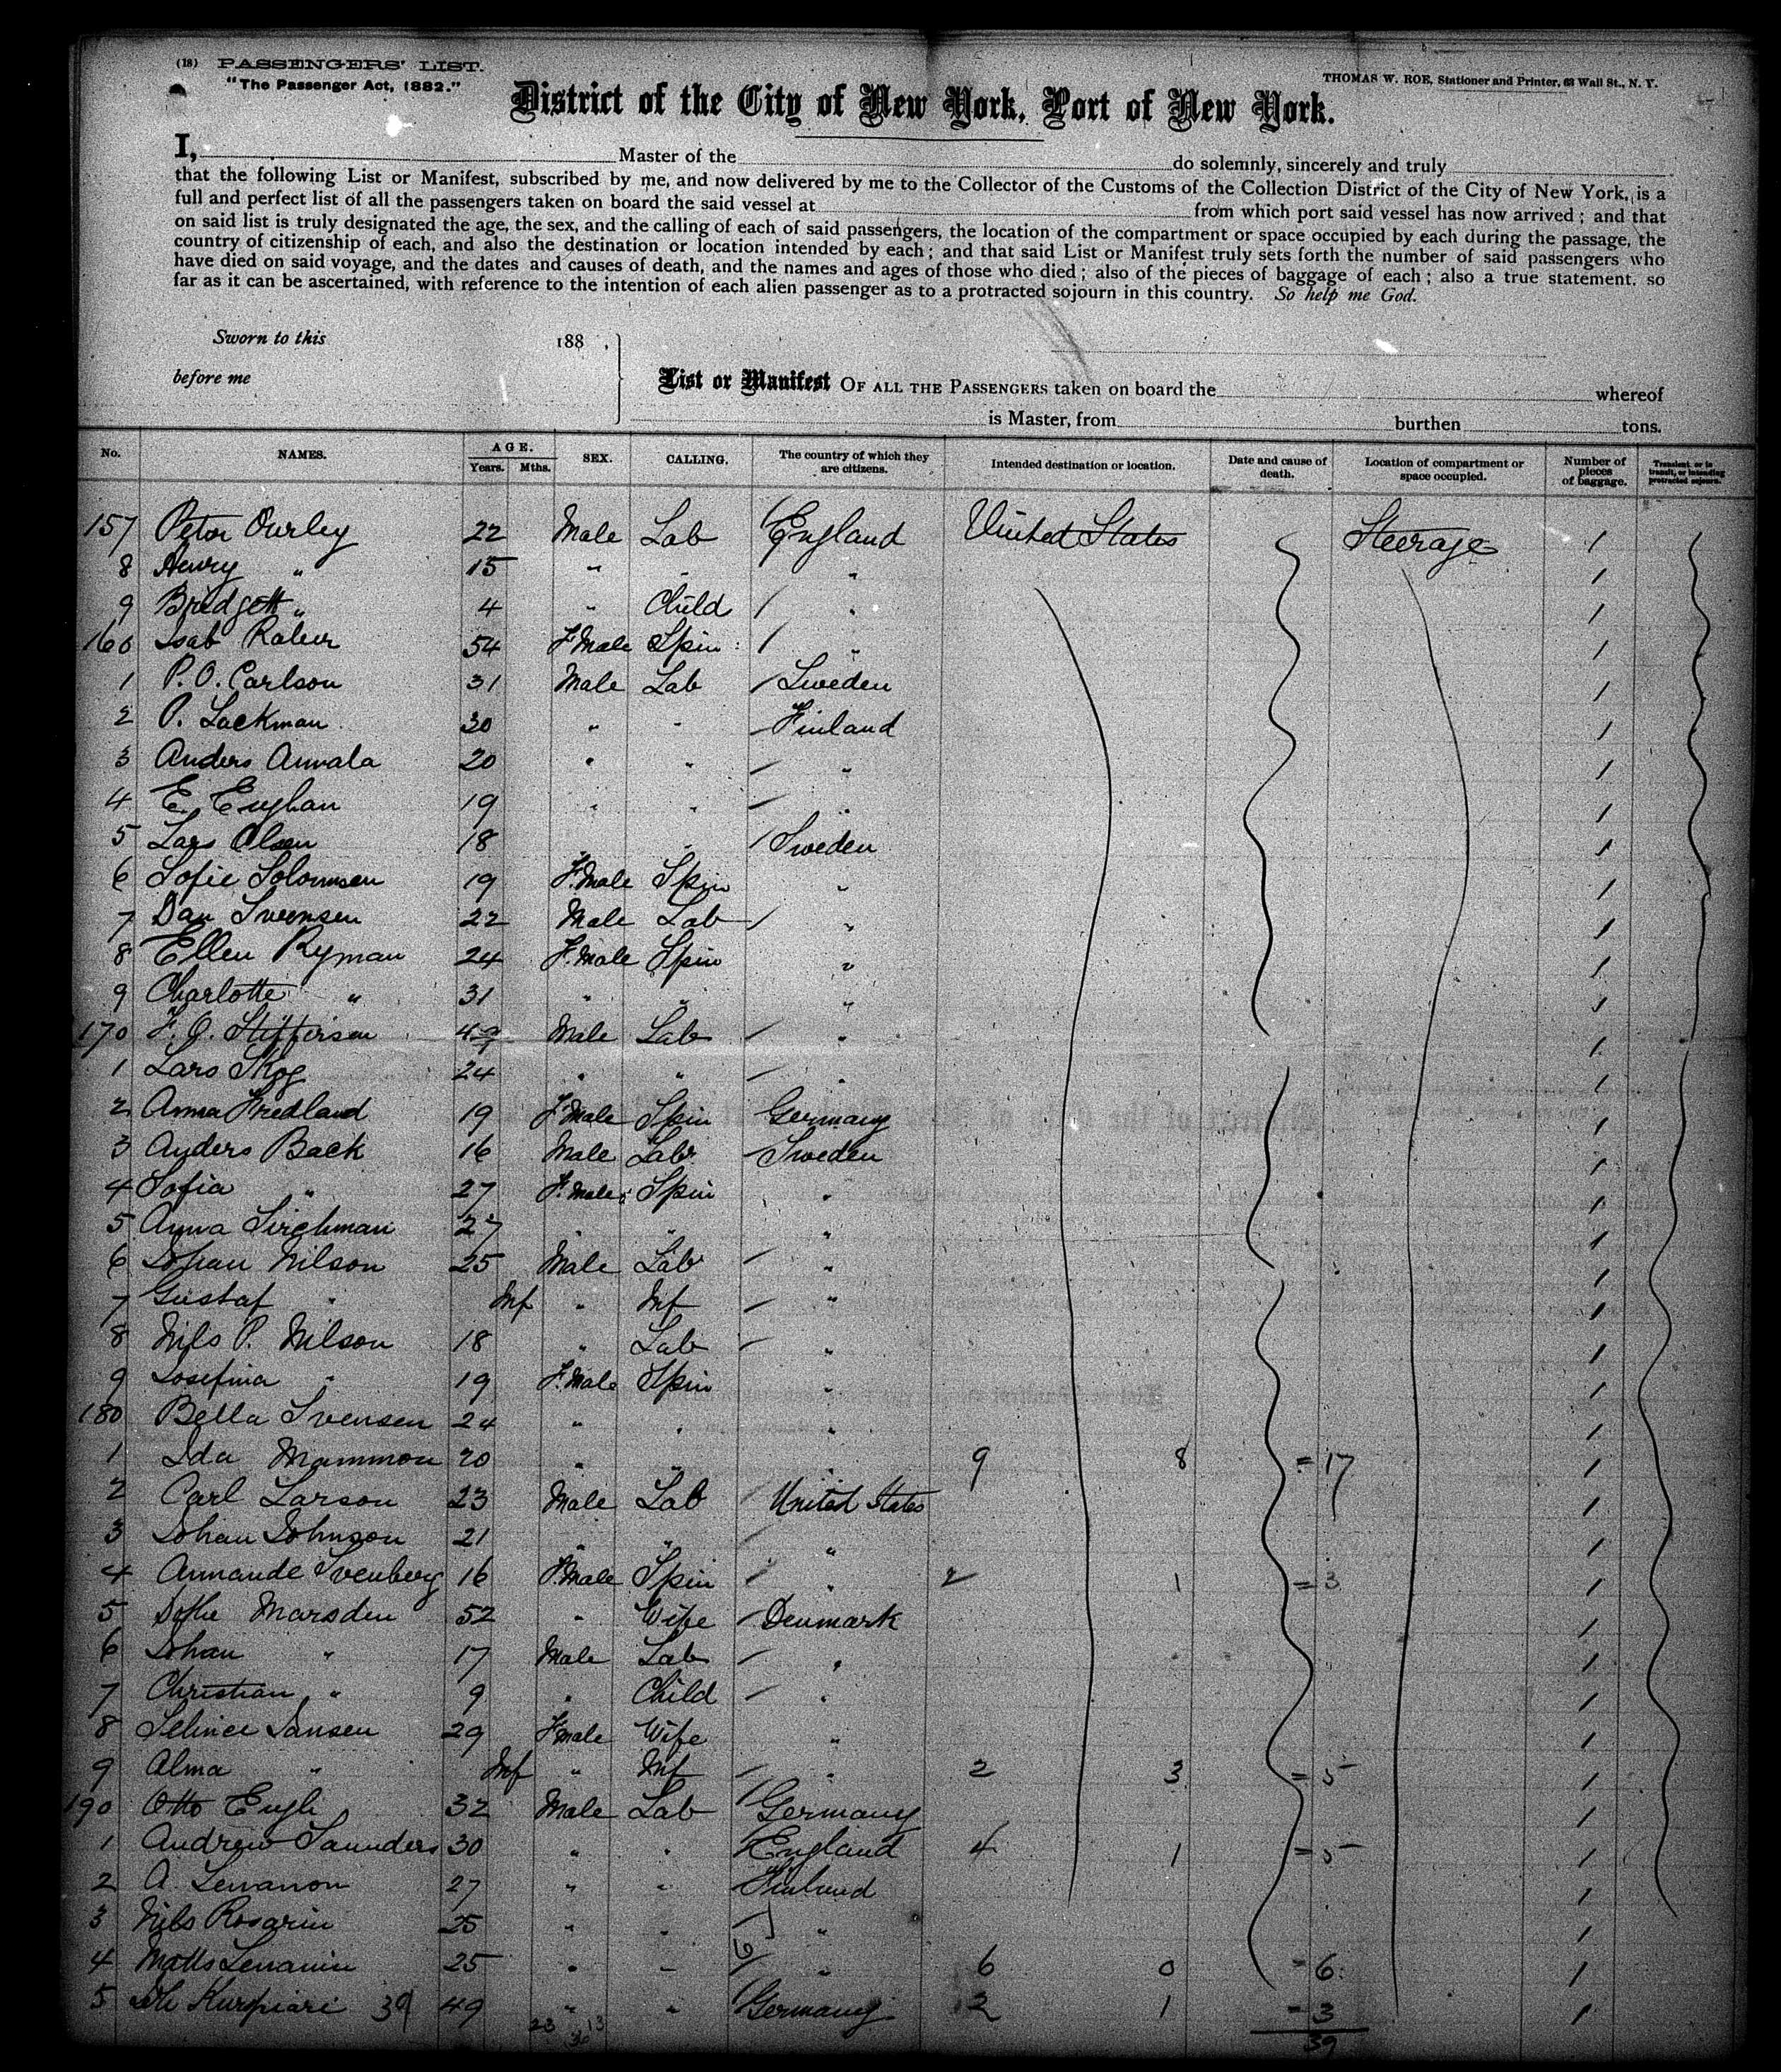 (18) PASSENGERS' LIST.
"The Passenger Act, 1882."
THOMAS W. ROE, Stationer and Printer, 63 Wall St., N. Y.
District of the City of New York, Port of New York.
I, Master of the do solemnly, sincerely and truly
that the following List or Manifest, subscribed by me, and now delivered by me to the Collector of the Customs of the Collection District of the City of New York, is a
full and perfect list of all the passengers taken on board the said vessel at from which port said vessel has now arrived; and that
on said list is truly designated the age, the sex, and the calling of each of said passengers, the location of the compartment or space occupied by each during the passage, the
country of citizenship of each, and also the destination or location intended by each; and that said List or Manifest truly sets forth the number of said passengers who
have died on said voyage, and the dates and causes of death, and the names and ages of those who died; also of the pieces of baggage of each; also a true statement, so
far as it can be ascertained, with reference to the intention of each alien passenger as to a protracted sojourn in this country. So help me God.
Sworn to this 188 ,
before me
List or Manifest OF ALL THE PASSENGERS taken on board the whereof
is Master, from burthen tons.
No. NAMES. AGE. Years. Mths. SEX. CALLING. The country of which they are citizens. Intended destination or location. Date and cause of death. Location of compartment or space occupied. Number of pieces of baggage. Transient, or in transit, or intending protracted sojourn.
157 Peter Ourley 22 Male Lab England United States Steerage 1
8 Henry " 15 " " " 1
9 Bridgett " 4 " Child " 1
160 Isab 54 F.Male Spin " 1
1 P. O. Carlson 31 Male Lab Sweden 1
2 P. Lackman 30 " " Finland 1
3 Anders 20 " " " 1
4 E. 19 " " " 1
5 Lars Olsen 18 " " Sweden 1
6 Sofie Solomsen 19 F.Male Spin " 1
7 Dan Svensen 22 Male Lab " 1
8 Ellen Ryman 24 F.Male Spin " 1
9 Charlotte " 31 " " " 1
170 F. O. Male Lab " 1
1 Lars Skog 24 " " " 1
2 Anna Fredland 19 F.Male Spin Germany 1
3 Anders Back 16 Male Lab Sweden 1
4 Sofia " 27 F.Male Spin " 1
5 Anna 27 " " " 1
6 Johan Nilson 25 Male Lab " 1
7 Gustaf " Inf " Inf " 1
8 Nils P. Nilson 18 " Lab " 1
9 Josefina " 19 F.Male Spin " 1
180 Bella Svensen 24 " " " 1
1 Ida Mammon 20 " " " 9 8 = 17 1
2 Carl Larson 23 Male Lab United States 1
3 Johan Johnson 21 " " " 1
4 Svenberg 16 F.Male Spin " 2 1 = 3 1
5 Marsden 52 " Wife Denmark 1
6 Johan " 17 Male Lab " 1
7 Christian " 9 " Child " 1
8 Jansen 29 F.Male Wife " 1
9 Alma " Inf " Inf " 2 3 = 5 1
190 Otto Engli 32 Male Lab Germany 1
1 Andrew Saunders 30 " " England 4 1 = 5 1
2 A. 27 " " Finland 1
3 Nils 25 " " " 1
4 Matts 25 " " 6 " 6 0 = 6 1
5 39 49 " " Germany 2 1 = 3 1
23 13
36
39